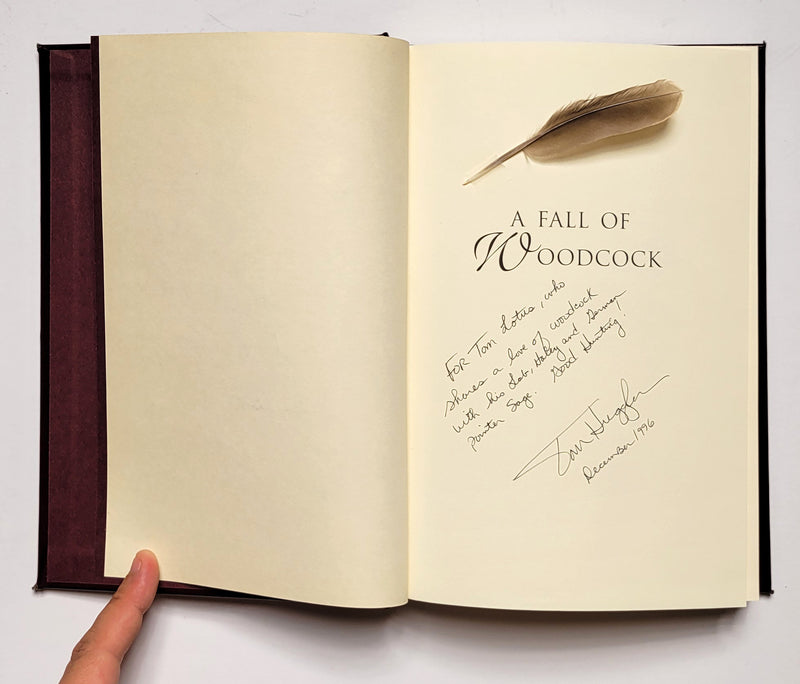 A FALL OF
WOODCOCK
FOR Tom Lotus, who
shares a love of woodcock
with his Lab, Haley and German
pointer Sage. Good Hunting!
Tom Huggler
December 1996